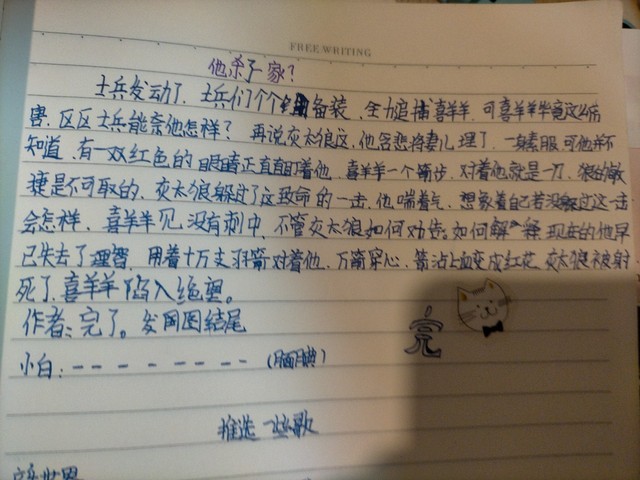 FREE WRITING
他杀了一家?
士兵发动了、士兵们个个全身备装、全力追捕喜羊羊、可喜羊羊毕竟这么厉
害、区区士兵能奈他怎样? 再说灰太狼这、他含悲将妻儿埋了、一身素服可他并不
知道、有一双红色的眼睛正直直盯着他、喜羊羊一个箭步、对着他就是一刀、狼的敏
捷是不可取的、灰太狼躲过了这致命的一击、他喘着气、想象着自己若没躲过这一击
会怎样、喜羊羊见没有刺中、不管灰太狼如何劝告、如何解释、现在的他早
已失去了理智、用着十万支羽箭对着他、万箭穿心、箭沾上血变成红花、灰太狼被射
死了、喜羊羊陷入绝望。
作者:完了。发网图结尾
小白:- - - - - - - - (腼腆)
完
推选一些歌